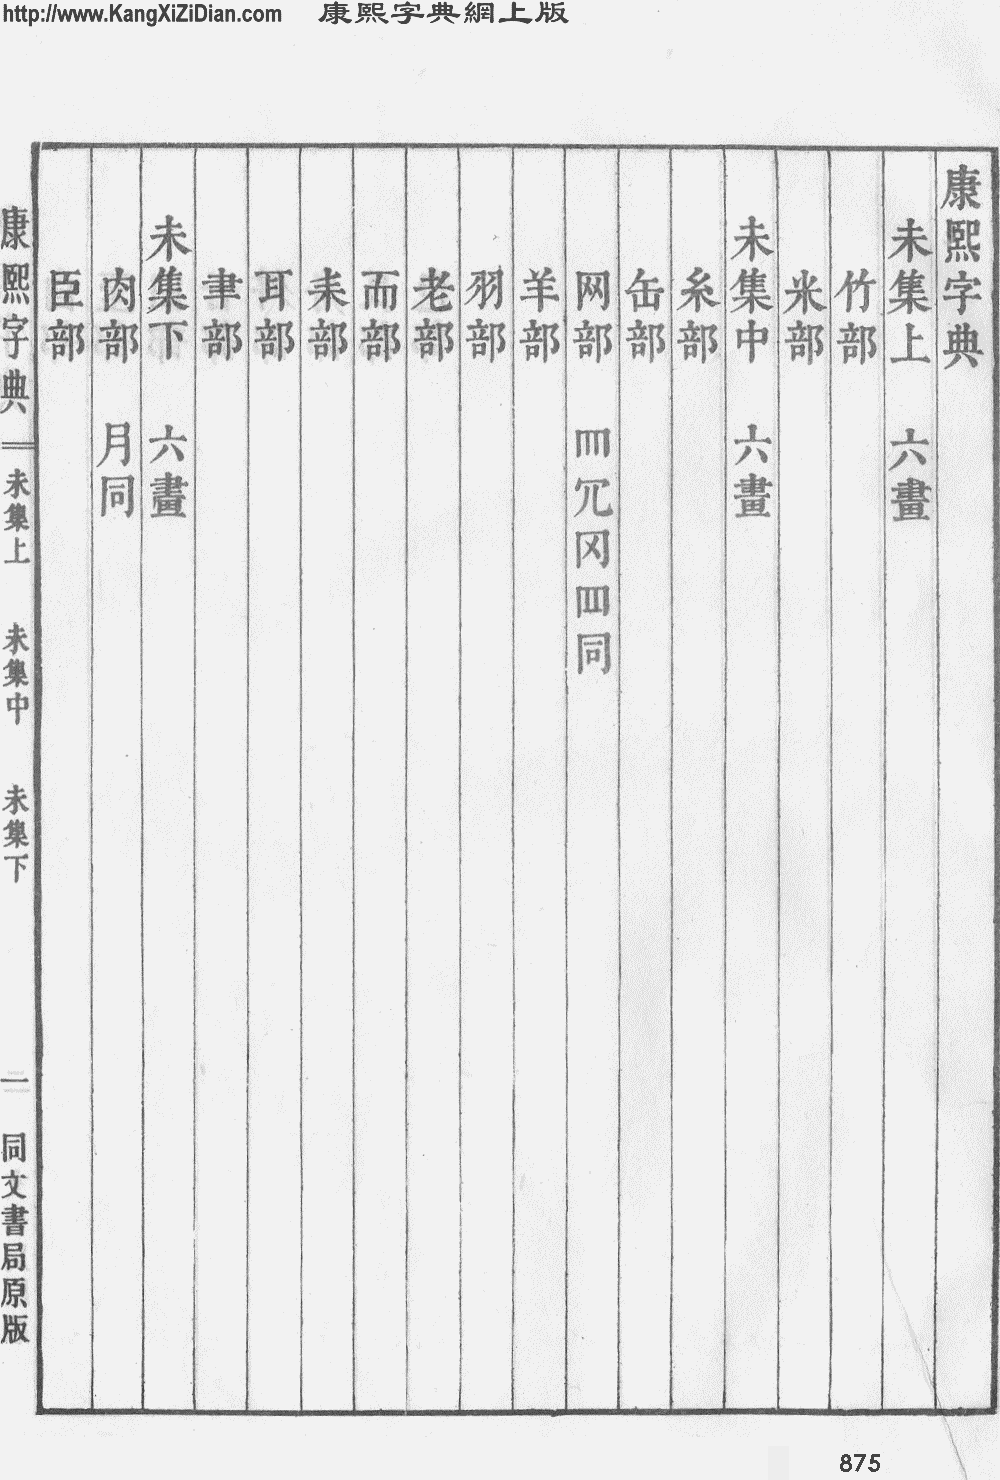 http://www.KangXiZiDian.com 康熙字典網上版
康熙字典
未集上 六畫
竹部
米部
未集中 六畫
糸部
缶部
网部 罒冗冈𦉰同
羊部
羽部
老部
而部
耒部
耳部
聿部
未集下 六畫
肉部 月同
臣部
康熙字典 未集上 未集中 未集下 一 同文書局原版
875